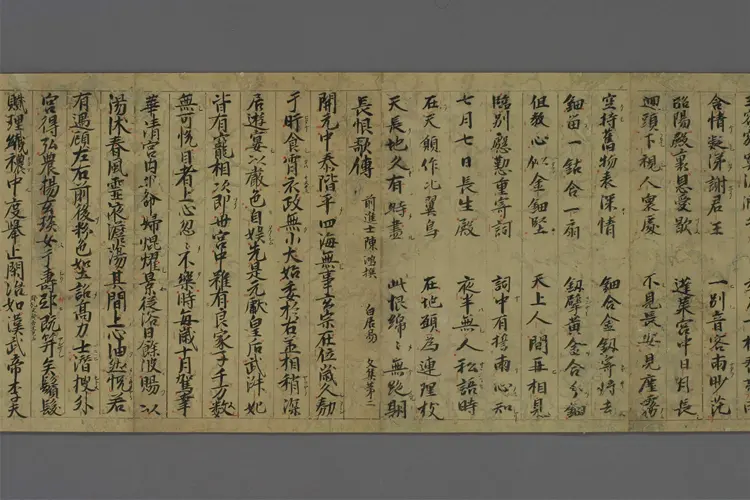 含情凝涕謝君王 一別音容兩眇茫
昭陽殿裏恩愛歇 蓬萊宮中日月長
迴頭下視人寰處 不見長安見塵霧
空持舊物表深情 鈿合金釵寄將去
鈿留一鈷合一扇 釵擘黃金合分鈿
但教心似金鈿堅 天上人間再相見
臨別慇懃重寄詞 詞中有誓兩心知
七月七日長生殿 夜半無人私語時
在天願作比翼鳥 在地願為連理枝
天長地久有時盡 此恨綿〻無絕期
長恨歌傳 前進士陳鴻撰 白居易 文集第二
開元中泰階平四海無事玄宗在位歲久勌
于旰食宵衣政無小大始委於右丞相稍深
居遊宴以聲色自娛先是元獻皇后武淑妃
皆有寵相次即世宮中雖有良家子千万數
無可悅目者上心忽〻不樂時每歲十月駕幸
華清宮內外命婦熠耀景從浴日餘波賜以
湯沐春風靈液澹蕩其間上心油然悅若
有遇顧左右前後粉色如土詔高力士潛搜外
宮得弘農楊玄琰女于壽邸既笄矣鬒髮
膩理纖穠中度舉止閑冶如漢武帝李夫